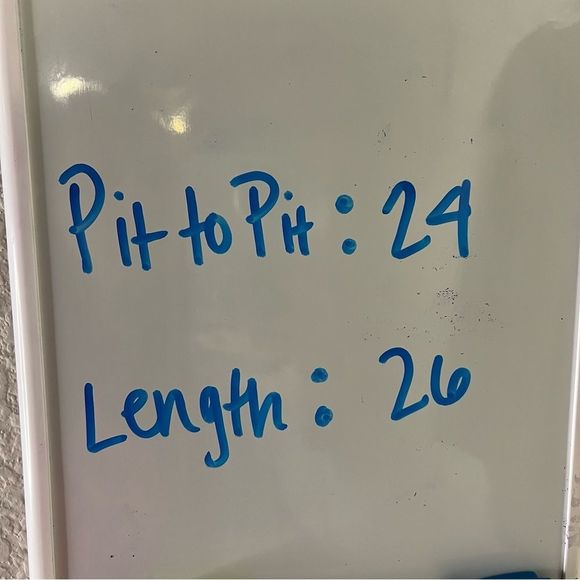 Pit to Pit: 24
Length: 26